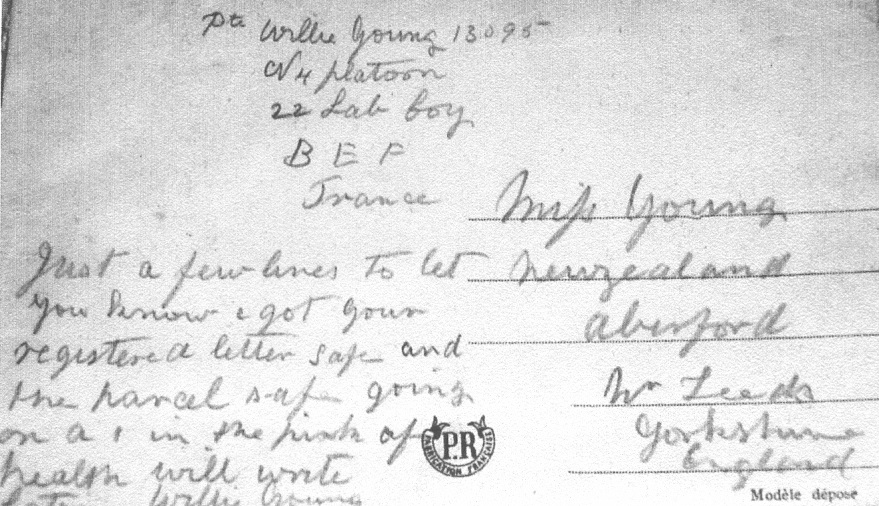 Pte Willie Young 13095
No 4 platoon
22 Lab Coy
B E F
France
Just a few lines to let
you know i got your
registered letter safe and
the parcel safe going
on a 1 in the pink of
health will write
later Willie Young
Miss Young
Newzealand
Aberford
Nr Leeds
Yorkshire
England
P.R
FABRICATION FRANÇAISE
Modèle déposé